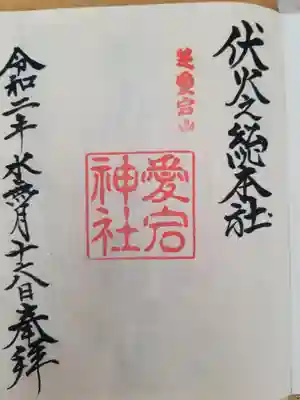 伏火之総本社
芝愛宕山
愛宕
神社
令和二年水無月十八日奉拝